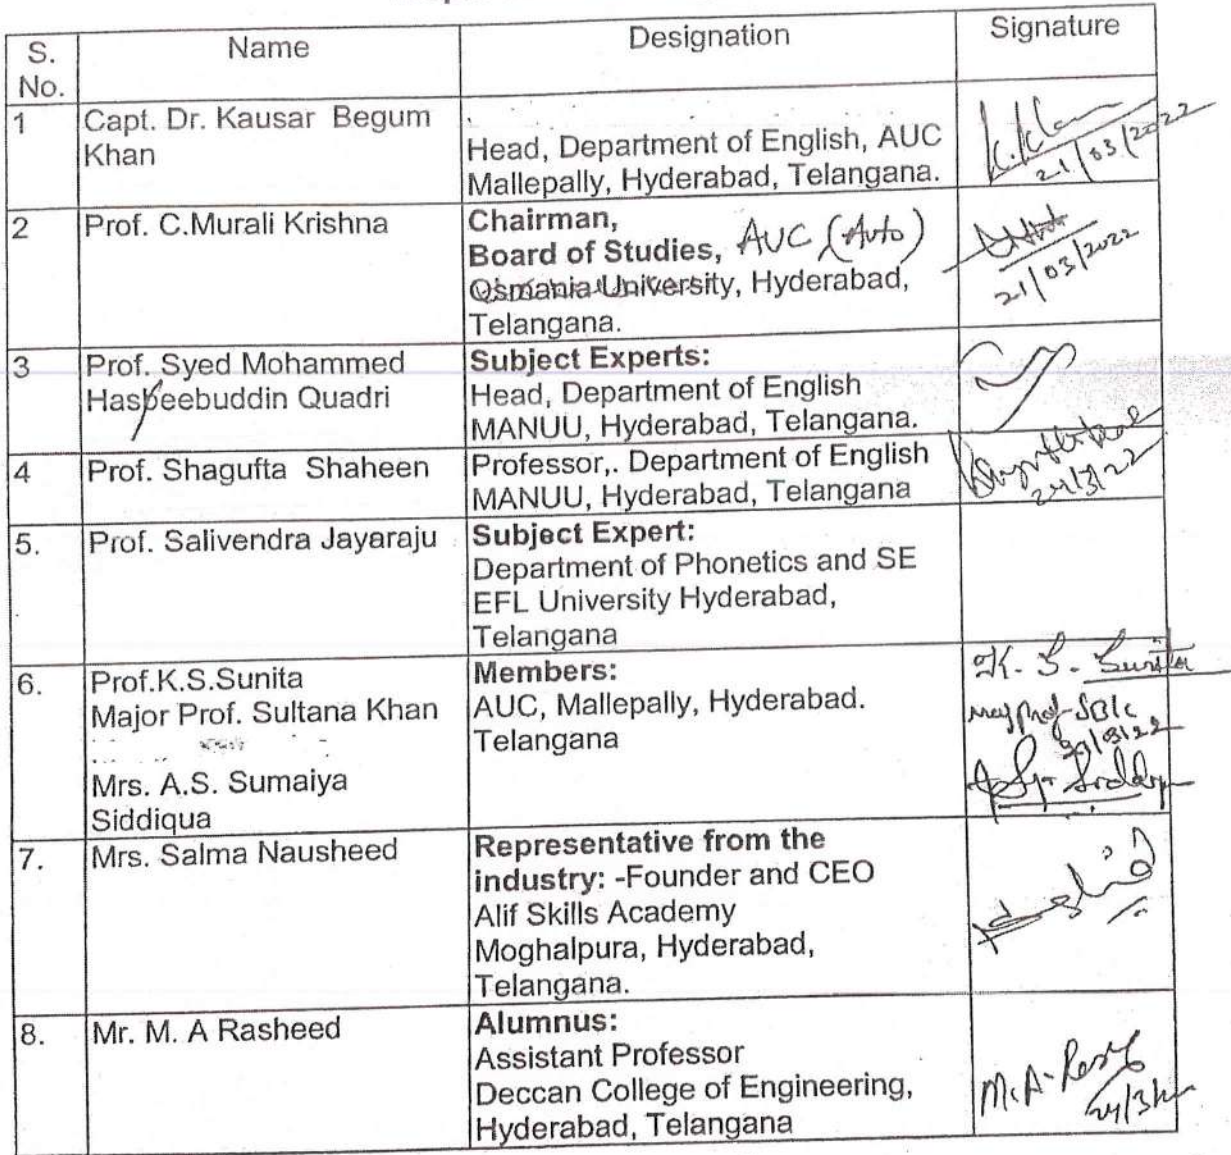 S. No. Name Designation Signature
1 Capt. Dr. Kausar Begum Khan
Head, Department of English, AUC
Mallepally, Hyderabad, Telangana.
K.Khan
21/03/2022
2 Prof. C.Murali Krishna
Chairman,
Board of Studies, AUC (Auto)
Osmania University, Hyderabad,
Telangana.
21/03/2022
3 Prof. Syed Mohammed
Hasbeebuddin Quadri
Subject Experts:
Head, Department of English
MANUU, Hyderabad, Telangana.
4 Prof. Shagufta Shaheen
Professor,. Department of English
MANUU, Hyderabad, Telangana
5. Prof. Salivendra Jayaraju
Subject Expert:
Department of Phonetics and SE
EFL University Hyderabad,
Telangana
6. Prof.K.S.Sunita
Major Prof. Sultana Khan
Mrs. A.S. Sumaiya
Siddiqua
Members:
AUC, Mallepally, Hyderabad.
Telangana
K. S. Sunita
7. Mrs. Salma Nausheed
Representative from the
industry: -Founder and CEO
Alif Skills Academy
Moghalpura, Hyderabad,
Telangana.
8. Mr. M. A Rasheed
Alumnus:
Assistant Professor
Deccan College of Engineering,
Hyderabad, Telangana